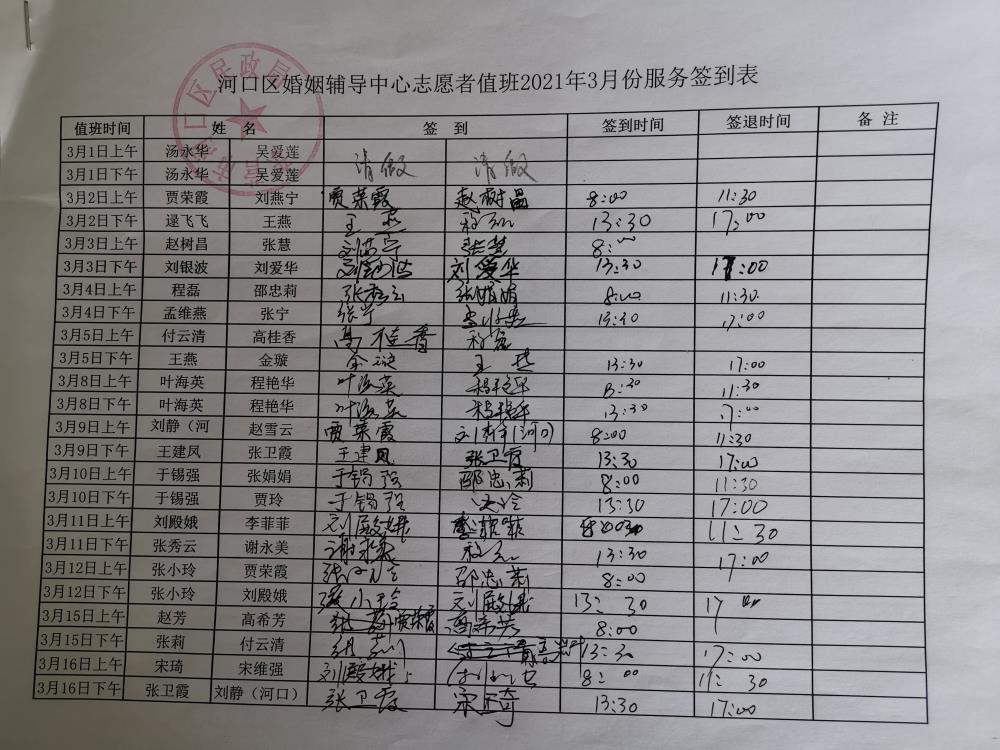 河口区婚姻辅导中心志愿者值班2021年3月份服务签到表
值班时间 姓 名 签 到 签到时间 签退时间 备 注
3月1日上午 汤永华 吴爱莲 请假 请假
3月1日下午 汤永华 吴爱莲
3月2日上午 贾荣霞 刘燕宁 贾荣霞 赵树昌 8:00 11:30
3月2日下午 逯飞飞 王燕 王燕 13:30 17:00
3月3日上午 赵树昌 张慧 张慧 8:00
3月3日下午 刘银波 刘爱华 刘爱华 13:30 17:00
3月4日上午 程磊 邵忠莉 张秀云 张娟娟 8:00 11:30
3月4日下午 孟维燕 张宁 张宁 13:30 17:00
3月5日上午 付云清 高桂香 高桂香 程磊
3月5日下午 王燕 金璇 金璇 王燕 13:30 17:00
3月8日上午 叶海英 程艳华 叶海英 程艳华 8:30 11:30
3月8日下午 叶海英 程艳华 叶海英 程艳华 13:30 17:00
3月9日上午 刘静（河 赵雪云 贾荣霞 刘静(河口) 8:00 11:30
3月9日下午 王建凤 张卫霞 王建凤 张卫霞 13:30 17:00
3月10日上午 于锡强 张娟娟 于锡强 邵忠莉 8:00 11:30
3月10日下午 于锡强 贾玲 于锡强 13:30 17:00
3月11日上午 刘殿娥 李菲菲 刘殿娥 李菲菲 11:30
3月11日下午 张秀云 谢永美 谢永美 13:30 17:00
3月12日上午 张小玲 贾荣霞 张小玲 邵忠莉 8:00
3月12日下午 张小玲 刘殿娥 张小玲 刘殿娥 13:30 17
3月15日上午 赵芳 高希芳 贾荣霞 高希芳 8:00
3月15日下午 张莉 付云清 13:30 17:00
3月16日上午 宋琦 宋维强 刘殿娥 8:00 11:30
3月16日下午 张卫霞 刘静（河口） 张卫霞 宋琦 13:30 17:00